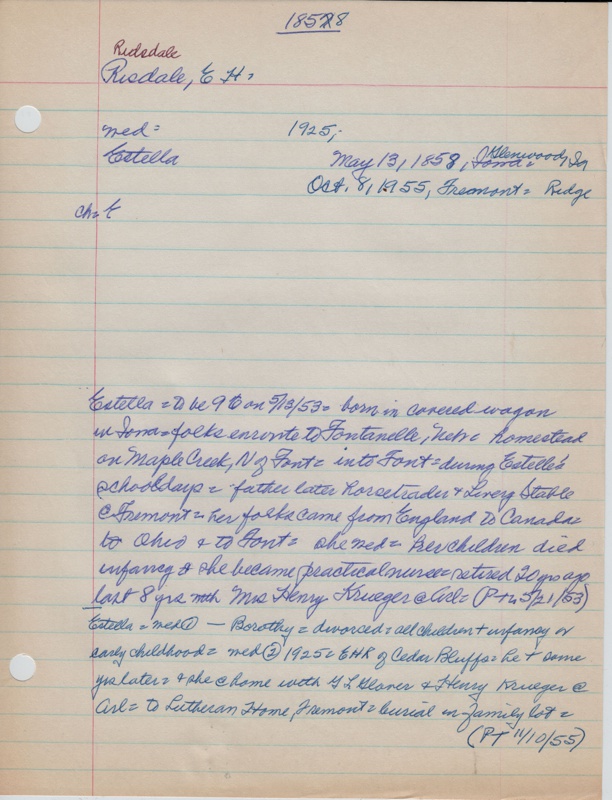 18528
Ridsdale
Risdale, E H =
med = 1925,-
Estella May 13, 1858, Iowa= Glenwood, Ia
Oct. 8, 1955, Fremont = Ridge
ch =
Estella = to be 95 on 5/13/53 = born in covered wagon
in Iowa = folks enroute to Fontanelle, Nebr = homestead
on Maple Creek, N of Font = into Font = during Estella's
schooldays = father later horsetrader + Livery Stable
@ Fremont = her folks came from England to Canada =
to Ohio + to Font = she med = her children died
infancy + she became practical nurse = retired 20 yrs ago
last 8 yrs with Mrs Henry Krueger @ Arl = (P+ 5/21/53)
Estella = med ① — Borothy = divorced = all children + infancy or
early childhood = med ② 1925 = EHR of Cedar Bluffs = he + some
yrs later = + she @ home with G L Glover + Henry Krueger @
Arl = to Lutheran Home, Fremont = burial in family lot =
(PT 11/10/55)